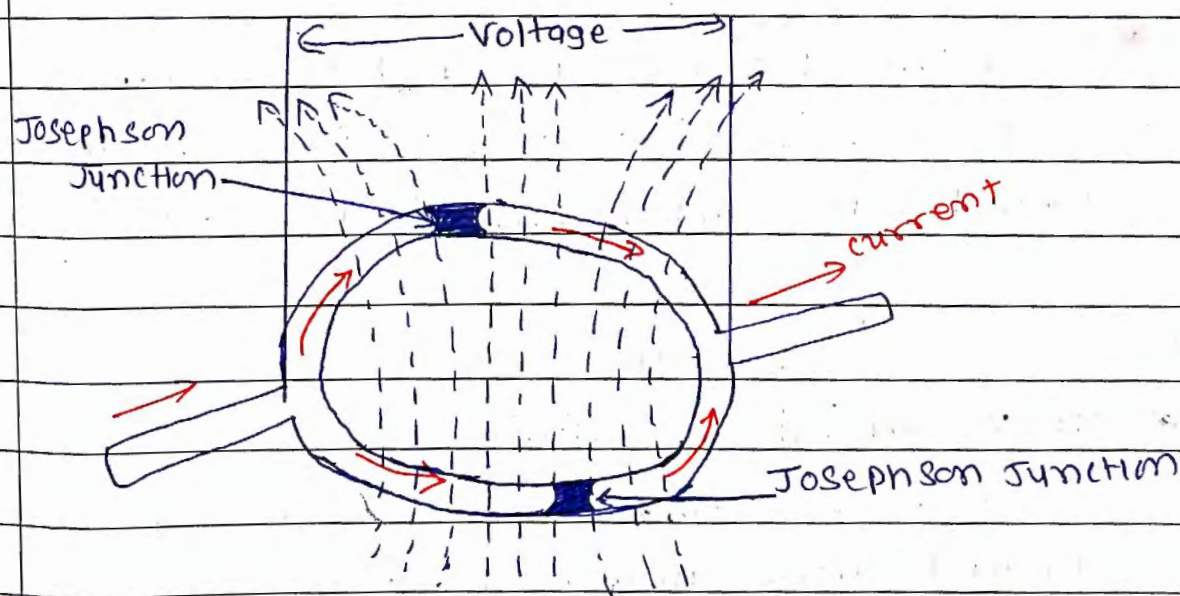 Voltage
Josephson
Junction
current
Josephson Junction